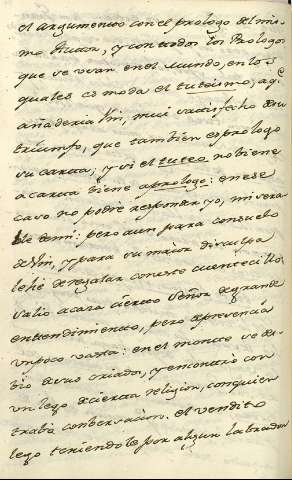 el argumento con el prologo del mis-
mo Autor, y con todos los Prologos
que se usan en el mundo, en los
quales es moda el tuteismo; aqi
añaderia Vm, mui satisfecho de su
triumfo, que tambien es prologo
su carta; y si el tuteo no viene
a carta viene a prologo: en ese
caso no podré responder yo, misera-
ble de mi: pero aun para consuelo
de Vm, y para su maior disculpa
le hé de regalar con este cuentecillo
salio a caza cierto Señor de grande
entendimiento, pero de prevencion
un poco vasta: en el monte se de-
vio de sus criados, y encontró con
un lego de cierta religion, con quien
trabó conversacion. el vendito
lego teniendole por algun labrador